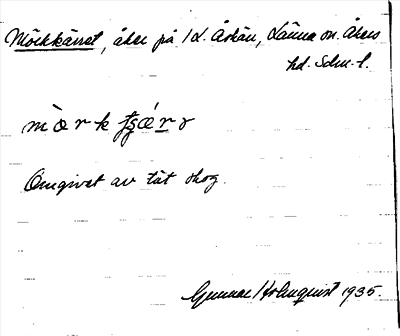 Mörkkärret, åker på 1 L. Åskän, Länna sn. Åkers
hd. Sdm-l.
mὰrk ʃʂǽrr
Omgivet av tät skog.
Gunnar Holmquist 1935.